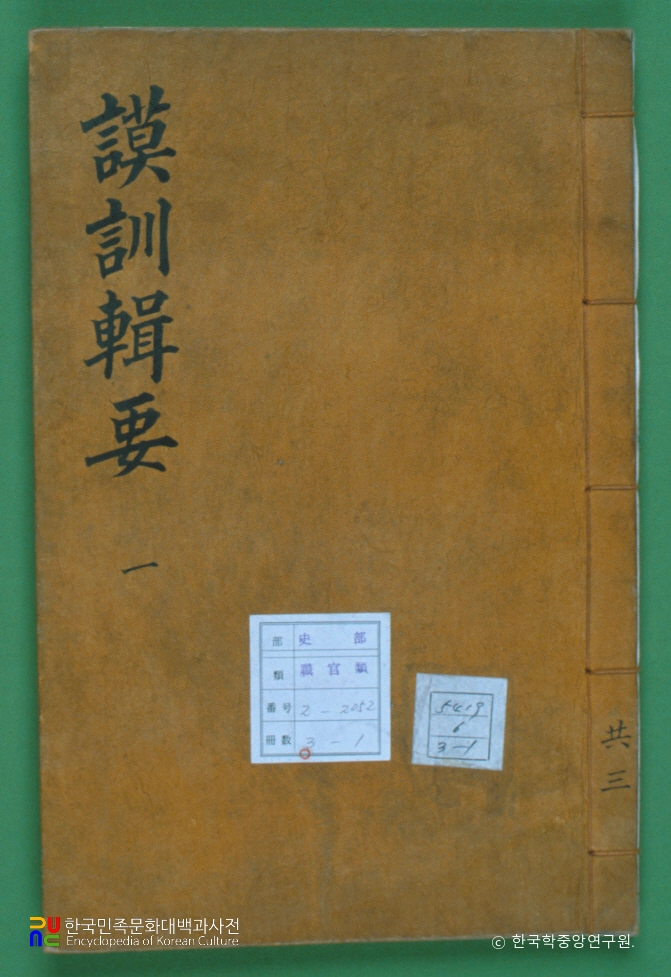 謨訓輯要
一
部 史部
類 職官類
番号 2-2052
冊数 3-1
5419
6
3-1
共三
한국민족문화대백과사전
Encyclopedia of Korean Culture
© 한국학중앙연구원.